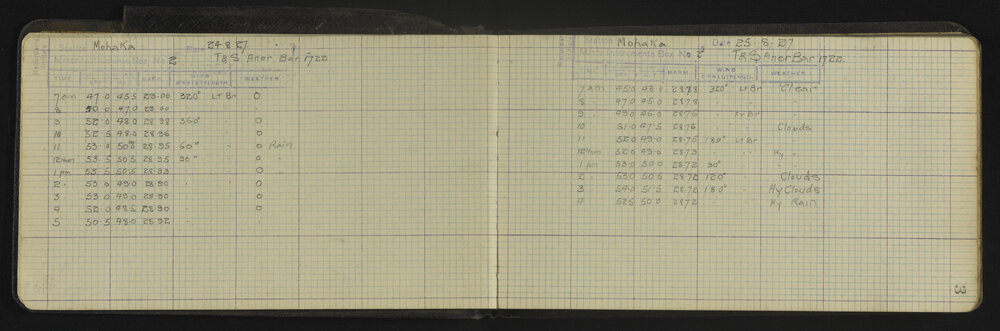 Station Mohaka 24·8·27
Instruments Box No 2 T&S Aner Bar 1722
TIME BARO WIND DIR & STRENGTH WEATHER
7 am 47·0 45·5 29·00 320° LT Br O
8 50·0 47·0 29·00 ·
9 52·0 48·0 28·98 360° · O
10 52·5 48·0 28·96 · O
11 53·0 50·0 28·95 60° · O Rain
12 Noon 53·5 50·5 28·95 90° · O
1 pm 53·5 50·5 28·93 · O ·
2 · 53·0 49·0 28·90 · O
3 · 53·0 49·0 28·90 · O
4 52·0 48·5 28·90 · O
5 50·5 48·0 28·92 ·
Station Mohaka Date 25·8·27
Instruments Box No 2 T&S Aner Bar 1722
TIME WIND DIR & STRENGTH WEATHER
7 am 45·0 43·0 28·78 320° Lt Br Clear
8 · 47·0 45·0 28·78 · ·
9 · 49·0 46·0 28·76 · Fr Br
10 51·0 47·5 28·76 · · Clouds
11 52·0 49·0 28·75 180° Lt Br ·
12 Noon 52·0 49·0 28·73 · Hy ·
1 pm 53·0 50·0 28·72 90° · ·
2 53·0 50·5 28·72 120° · Clouds
3 54·0 51·5 28·72 180° · Hy Clouds
4 52·5 50·0 28·72 · · Hy Rain
3